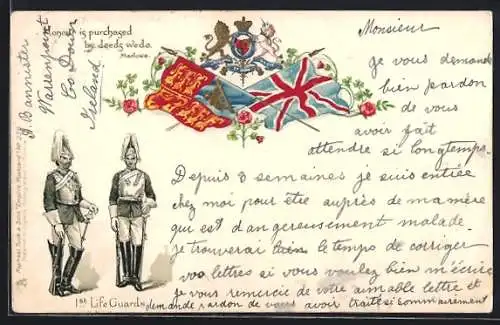 Honour is purchased
by deeds we do.
Marlowe.
J. Bannister
Warrenpoint
Co Down
Ireland
Raphael Tuck & Sons "Empire" Postcard
1st Life Guards
Monsieur
je vous demande
bien pardon
de vous
avoir fait
attendre si longtemps.
Depuis 3 semaines je suis entiée
chez moi pour être auprès de ma mère
qui est dangereusement malade.
je trouverai bien le temps de corriger
vos lettres si vous voulez bien m'écrire
je vous remercie de votre aimable lettre et
demande pardon de vous avoir traité si sommairement